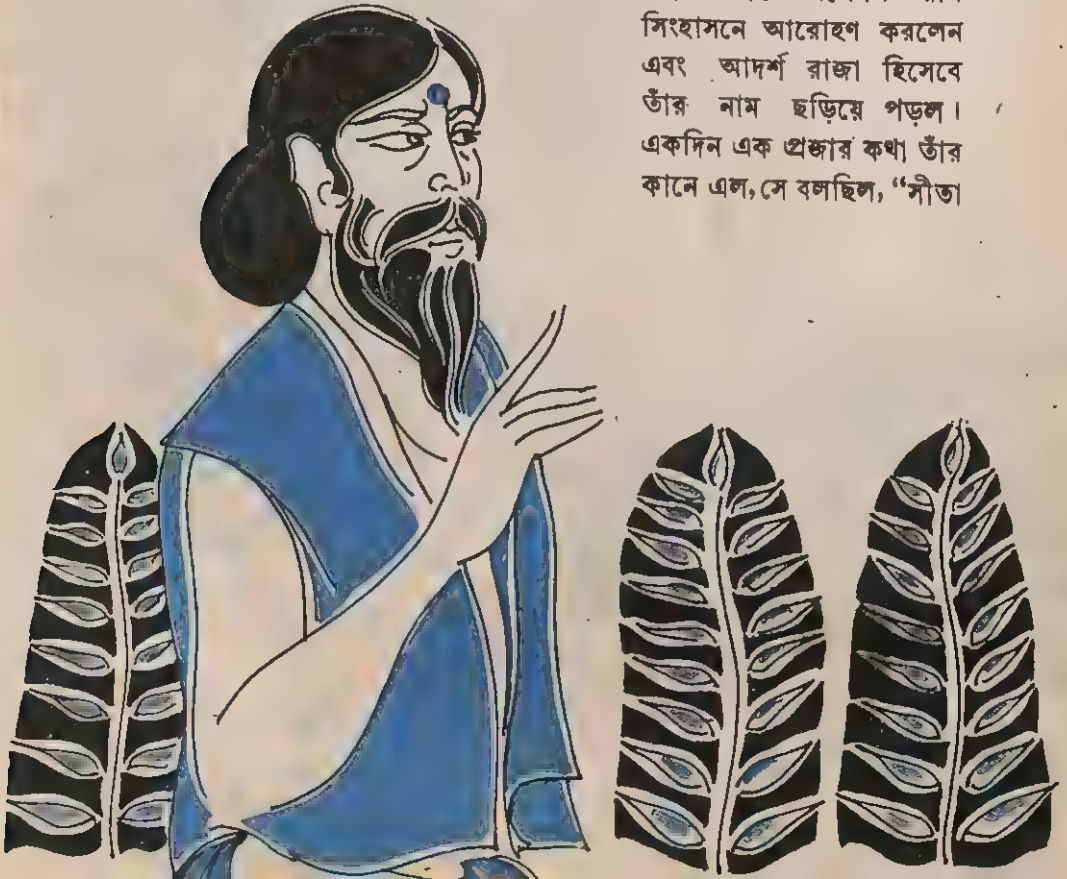 সিংহাসনে আরোহণ করলেন
এবং আদর্শ রাজা হিসেবে
তাঁর নাম ছড়িয়ে পড়ল।
একদিন এক প্রজার কথা তাঁর
কানে এল, সে বলছিল, “সীতা